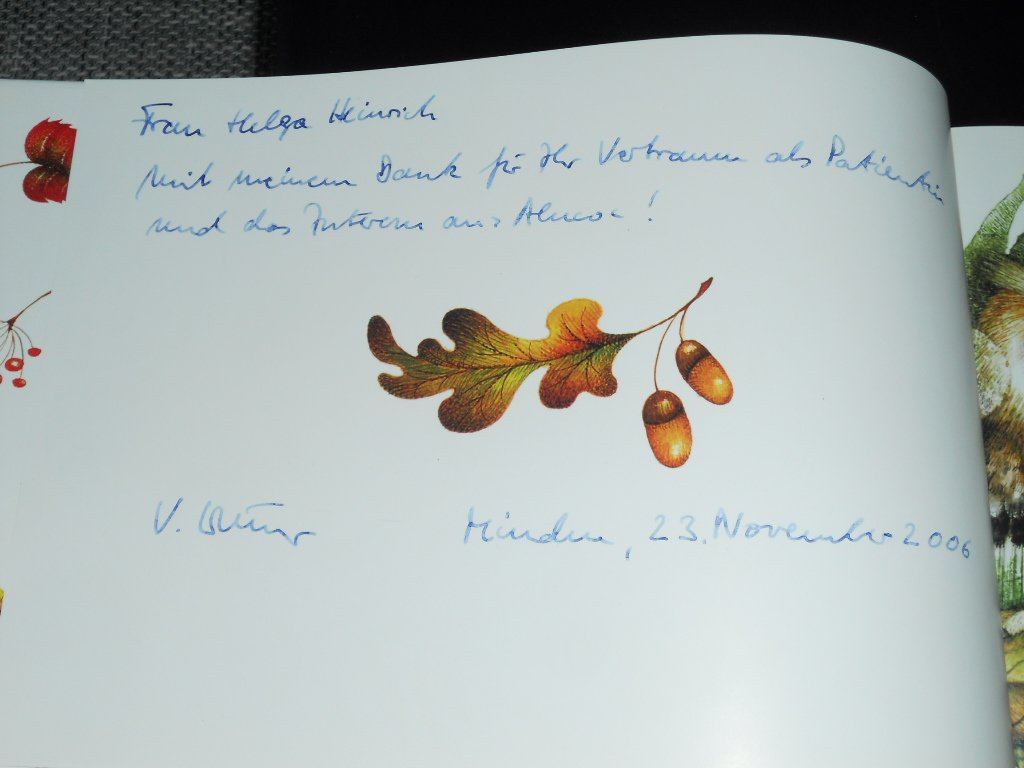 Frau Helga Heinrich
Mit meinem Dank für Ihr Vertrauen als Patientin
und das Interesse !
V.
Minden, 23. November 2006